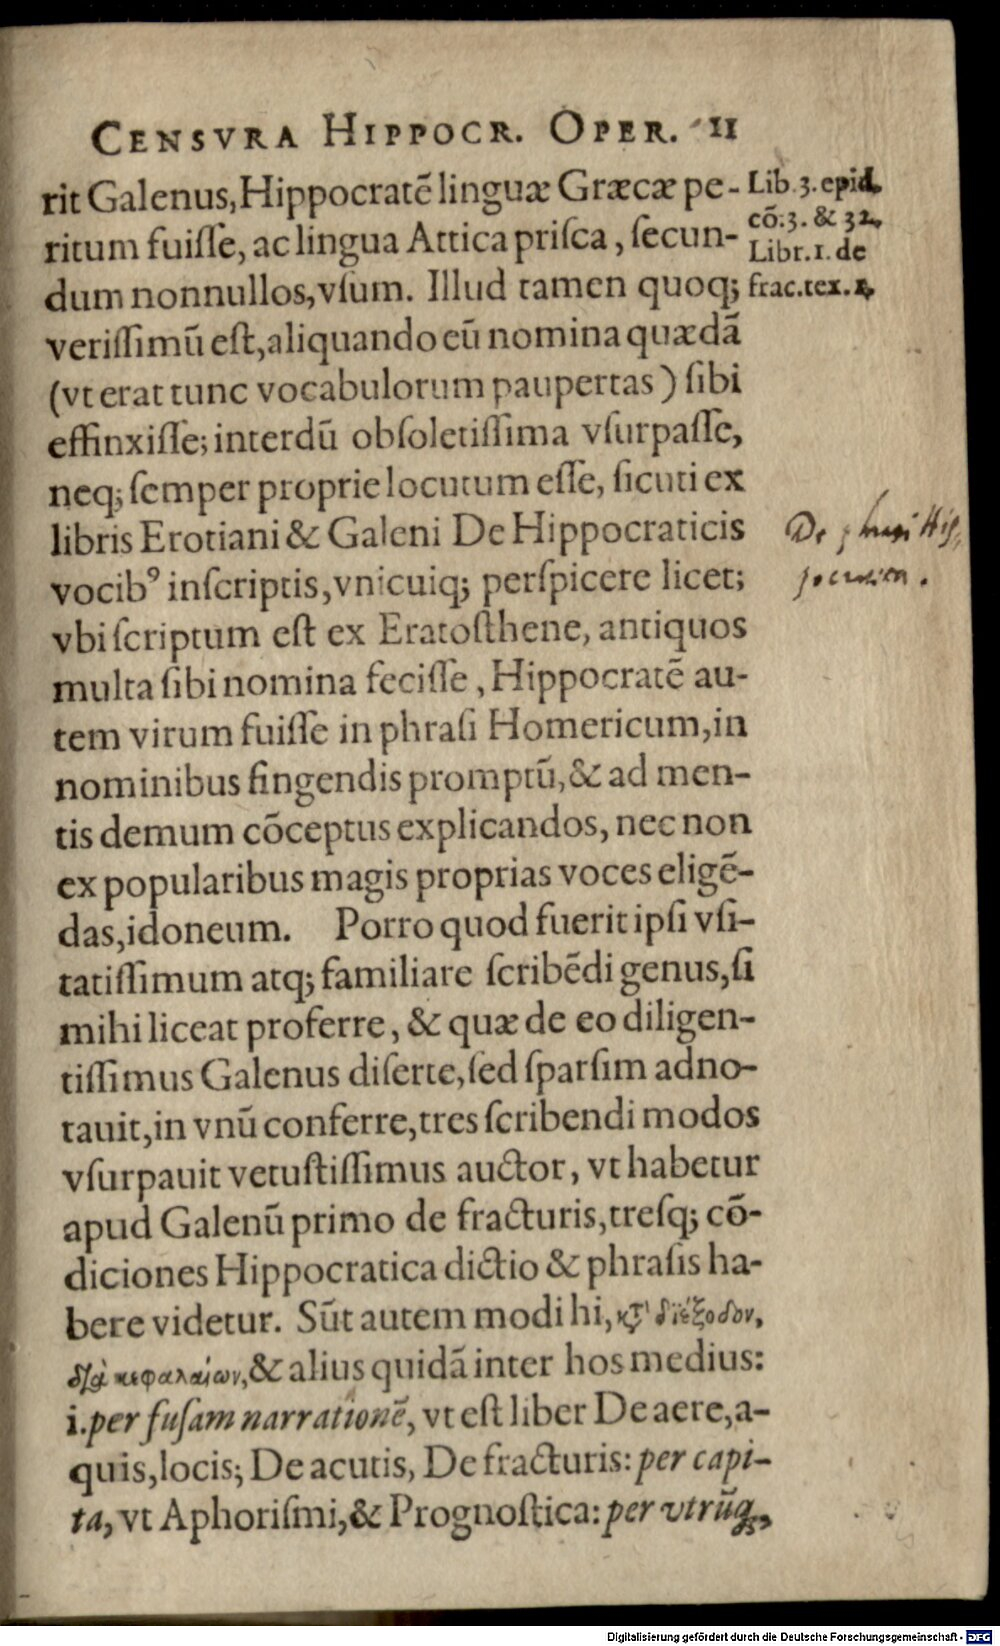 CENSVRA HIPPOCR. OPER. 11
rit Galenus, Hippocratē linguæ Græcæ pe-
ritum fuiſſe, ac lingua Attica priſca, ſecun-
dum nonnullos, vſum. Illud tamen quoq;
veriſſimū eſt, aliquando eū nomina quædā
(vt erat tunc vocabulorum paupertas) ſibi
effinxiſſe; interdū obſoletiſſima vſurpaſſe,
neq; ſemper proprie locutum eſſe, ſicuti ex
libris Erotiani & Galeni De Hippocraticis
vocibꝰ inſcriptis, vnicuiq; perſpicere licet;
vbi ſcriptum eſt ex Eratoſthene, antiquos
multa ſibi nomina feciſſe, Hippocratē au-
tem virum fuiſſe in phraſi Homericum, in
nominibus fingendis promptū, & ad men-
tis demum cōceptus explicandos, nec non
ex popularibus magis proprias voces eligē-
das, idoneum. Porro quod fuerit ipſi vſi-
tatiſſimum atq; familiare ſcribēdi genus, ſi
mihi liceat proferre, & quæ de eo diligen-
tiſſimus Galenus diſerte, ſed ſparſim adno-
tauit, in vnū conferre, tres ſcribendi modos
vſurpauit vetuſtiſſimus auctor, vt habetur
apud Galenū primo de fracturis, treſq; cō-
diciones Hippocratica dictio & phraſis ha-
bere videtur. Sūt autem modi hi, κτ̀ διέξοδον,
διὰ κεφαλαίων, & alius quidā inter hos medius:
i. per fuſam narrationē, vt eſt liber De aere, a-
quis, locis; De acutis, De fracturis: per capi-
ta, vt Aphoriſmi, & Prognoſtica: per vtrūq;,
Lib. 3. epid.
cō. 3. & 32.
Libr. 1. de
frac. tex. 1.
De phrasi Hip-